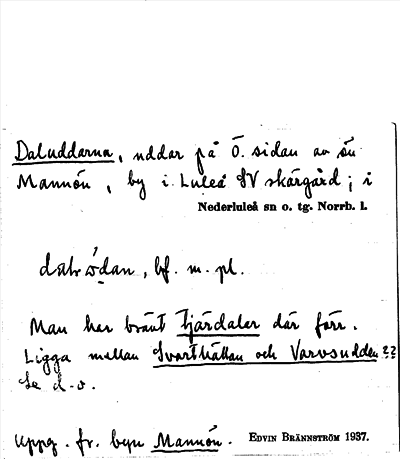 Daluddarna, uddar på Ö. sidan av ön
Mannön, by i Luleå SV skärgård; i
Nederluleå sn o. tg. Norrb. l.
bf. m. pl.
Man har bränt tjärdalar där förr.
Ligga mellan Svarthällan och Varvsudden??
Se d.o.
Uppg. fr. byn Mannön. EDVIN BRÄNNSTRÖM 1937.